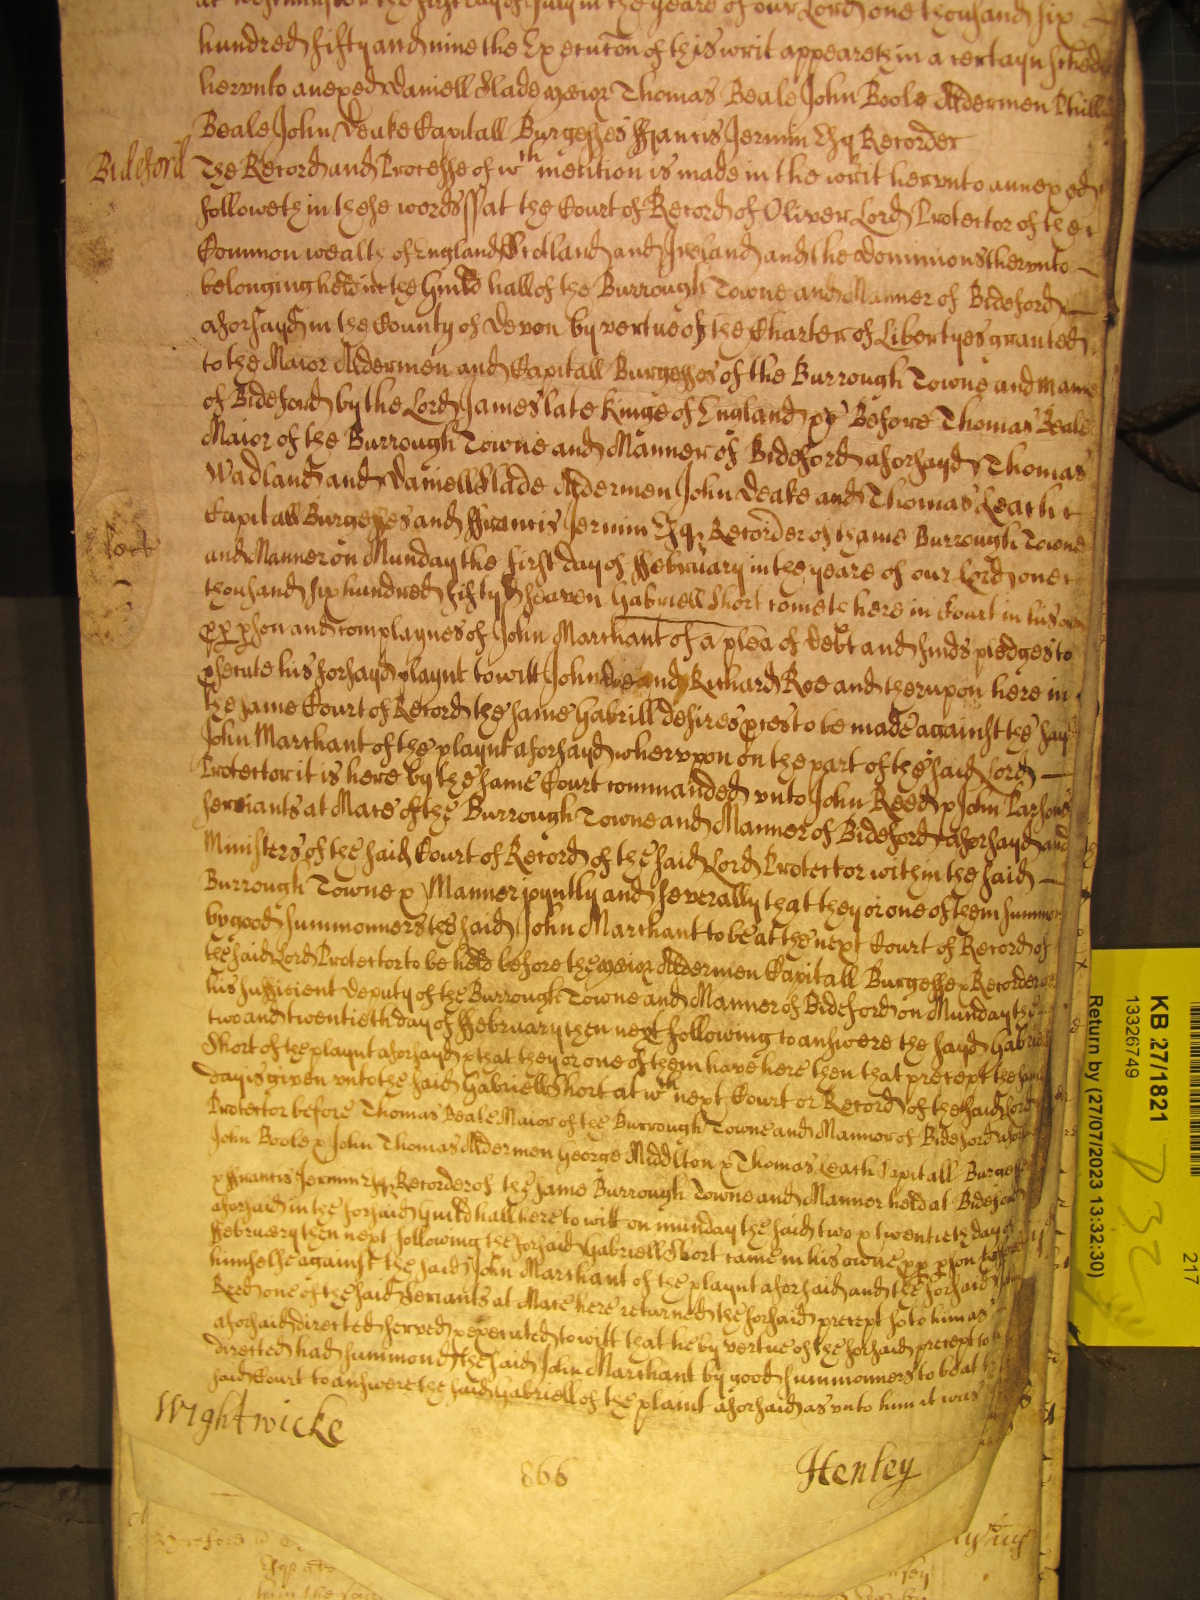 at Westminster the first day of July in the yeare of our Lord one thousand six
hundred fifty and nine the Execucon of this writ appeareth in a certayn Sched
herunto anexed Daniell Slade Maior Thomas Beale John Boole Aldermen Phill
Beale John Deake Capitall Burgesses ffrancis Jermin Esq Recorder
Bideford The Record and Processe of wth mention is made in the writ herunto annexed
followeth in these words ss at the Court of Record of Oliver Lord Protector of the
Common wealth of England Scotland and Ireland and the dominions therunto
belonging held in the Guild hall of the Burrough Towne and Manner of Bideford
aforsayd in the County of Devon by vertue of the Charter of Libertyes granted
to the Maior Aldermen and Capitall Burgesses of the Burrough Towne and Mann
of Bideford by the Lord James late Kinge of England &c Before Thomas Beale
Maior of the Burrough Towne and Manner of Bideford aforsayd Thomas
Wadland and Daniell Slade Aldermen John Deake and Thomas Leach
Capitall Burgesses and ffrancis Jermin Esq Recorder of the same Burrough Towne
and Manner on Munday the first day of ffebruary in the yeare of our Lord one
thousand six hundred fifty & seaven Gabriell Short cometh here in Court in his own
pp pson and complaynes of John Marchant of a plea of debt and finds pledges to
psecute his forsayd playnt to witt John Doe and Richard Roe and therupon here in
the same Court of Record the same Gabriell desires pces to be made against the say
John Marchant of the playnt aforsayd wherupon on the part of the said Lord
Protector it is here by the same Court commanded unto John Reed & John Parsons
Serviants at Mace of the Burrough Towne and Manner of Bideford aforsayd and
Ministers of the said Court of Record of the said Lord Protector within the said
Burrough Towne & Manner joyntly and severally that they or one of them summon
by good summonners the said John Marchant to be at the next Court of Record of
the said Lord Protector to be held before the Maior Aldermen Capitall Burgesse & Recorder or
his sufficient deputy of the Burrough Towne and Manner of Bideford on Munday the
two and twentieth day of ffebruary then next following to answere the sayd Gabriell
Short of the playnt aforsayd & that they or one of them have here then that precept the same
day is given unto the said Gabriell Short at wch next Court of Record of the said Lord
Protector before Thomas Beale Maior of the Burrough Towne and Mannor of Bideford afor
John Boole & John Thomas Aldermen George Middlton & Thomas Leach Capitall Burgess
& ffrancis Jermin Esq Recorder of the same Burrough Towne and Manner held at Bideford
aforsaid in the forsaid Guild hall here to witt on munday the said two & twentieth day of
ffebruery then next following the forsaid Gabriell Short came in his owne pp pson
himselfe against the said John Marchant of the playnt aforsaid and the forsaid John
Reed one of the said Serviants at Mace here returned the forsaid precept so to him as
aforsaid directed served & executed to witt that he by vertue of the forsaid precept to
directed had summond the said John Marchant by good summonners to be at
said Court to answere the said Gabriell of the plaint aforsaid as unto him it was
Wightwicke
866
Henley
KB 27/1821
13326749
Return by (27/07/2023 13:32:30)
217